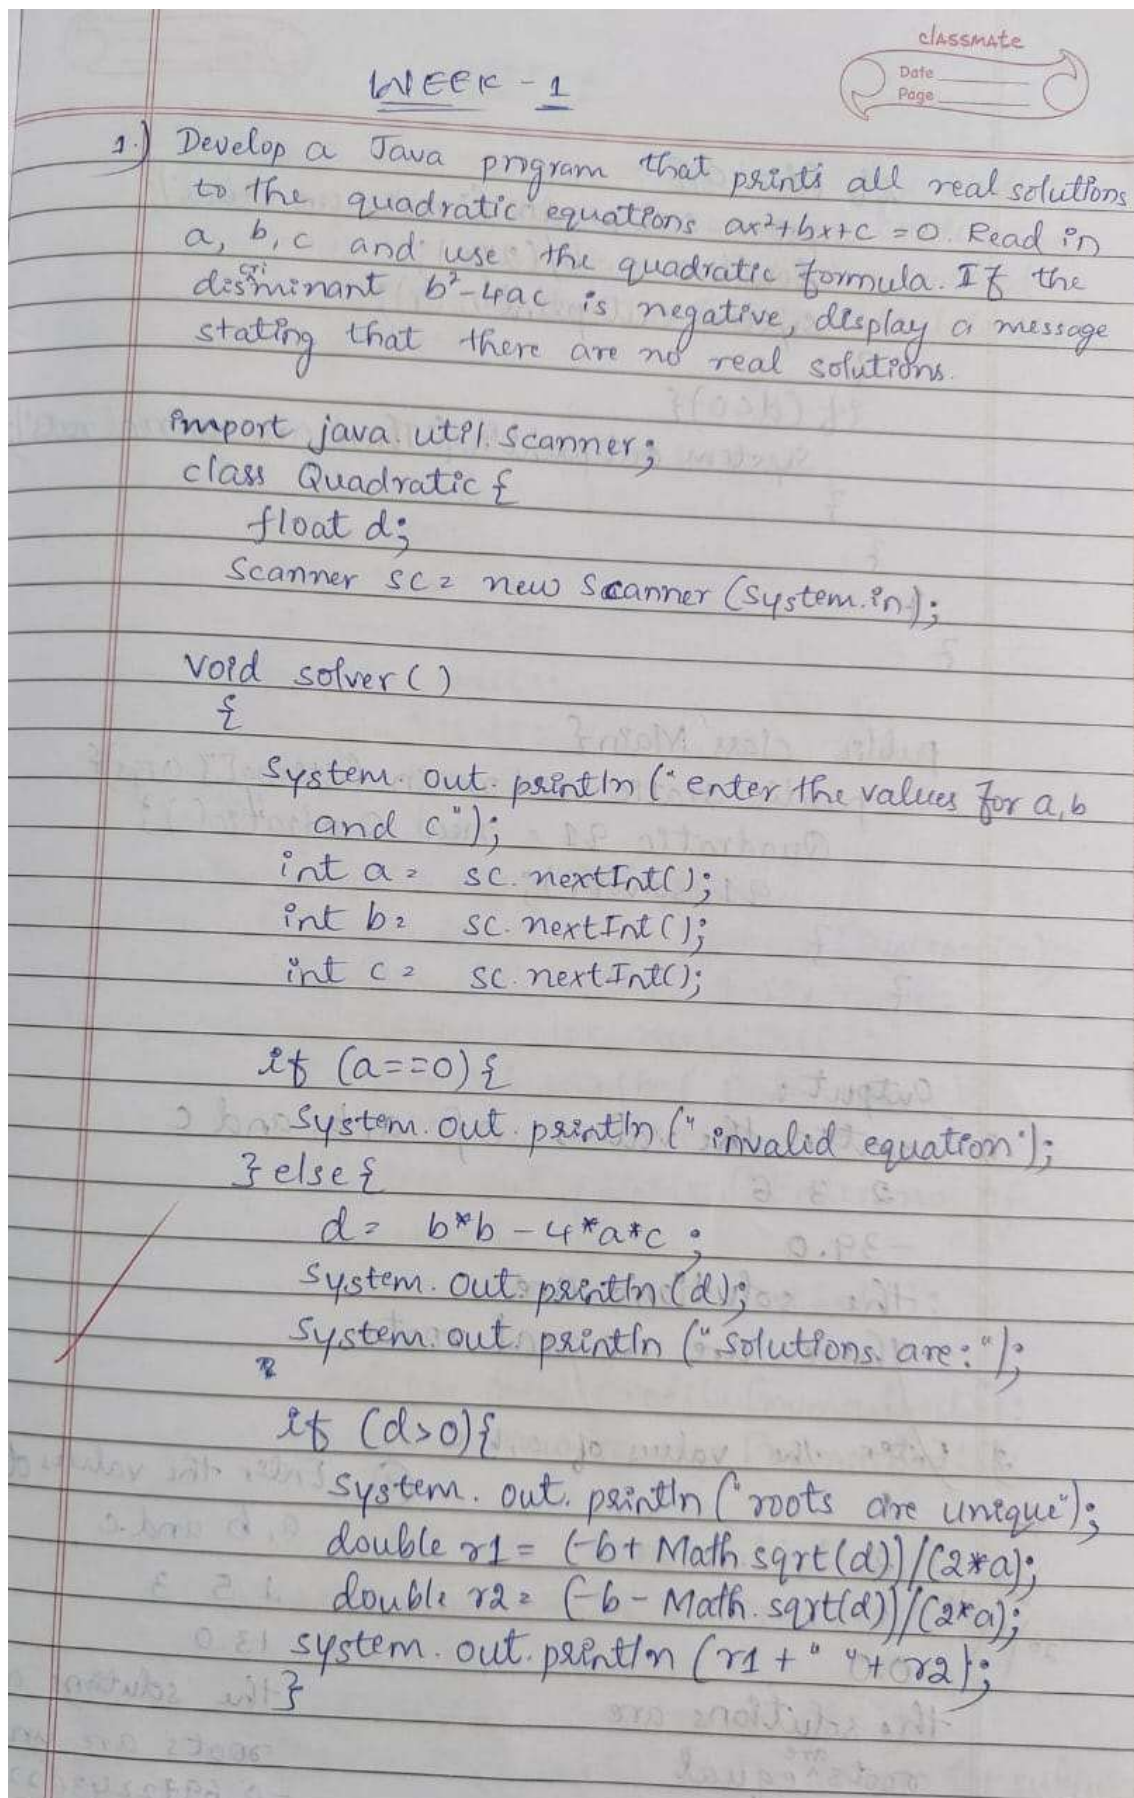 classmate
Date
Page
WEEK - 1
1.) Develop a Java program that prints all real solutions
to the quadratic equations ax²+bx+c = 0. Read in
a, b, c and use the quadratic formula. If the
discriminant b²-4ac is negative, display a message
stating that there are no real solutions.
import java.util.Scanner;
class Quadratic {
float d;
Scanner sc = new Scanner (System.in);
void solver ( )
{
System.out.println (" enter the values for a, b
and c");
int a = sc.nextInt();
int b = sc.nextInt();
int c = sc.nextInt();
if (a==0) {
System.out.println (" invalid equation");
} else {
d = b*b - 4*a*c ;
System.out.println (d);
System.out.println ("solutions are: ");
if (d>0) {
System.out.println ("roots are unique");
double r1 = (-b + Math.sqrt(d))/(2*a);
double r2 = (-b - Math.sqrt(d))/(2*a);
System.out.println (r1 + " " + r2);
}